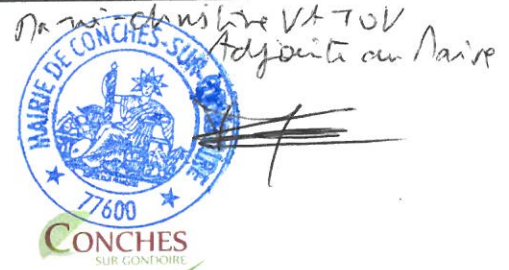 Marie-Christine VATOV
Adjointe au Maire
MAIRIE DE CONCHES-SUR-GONDOIRE
77600
CONCHES
SUR GONDOIRE